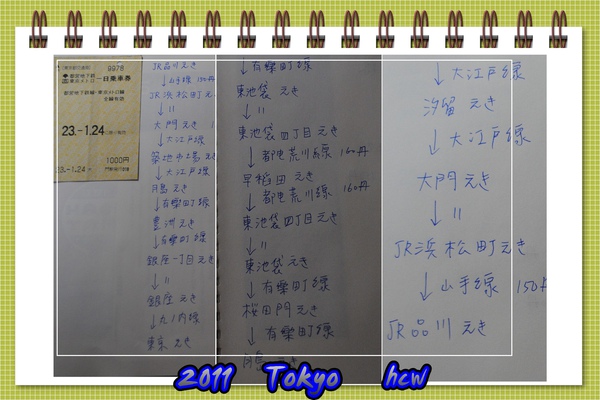 9978
一日乗車券
23.-1.24
23.-1.24
1000円
JR品川えき
↓山手線 150円
JR浜松町えき
↓〃
大門えき
↓大江戸線
築地市場えき
↓大江戸線
月島えき
↓有楽町線
豊洲えき
↓有楽町線
銀座一丁目えき
↓〃
銀座えき
↓丸ノ内線
東京えき
↓有楽町線
東池袋えき
↓〃
東池袋四丁目えき
↓都电荒川線 160円
早稲田えき
↓都电荒川線 160円
東池袋四丁目えき
↓〃
東池袋えき
↓有楽町線
桜田門えき
↓有楽町線
月島えき
↓大江戸線
汐留えき
↓大江戸線
大門えき
↓〃
JR浜松町えき
↓山手線 150円
JR品川えき
2011 Tokyo hcw